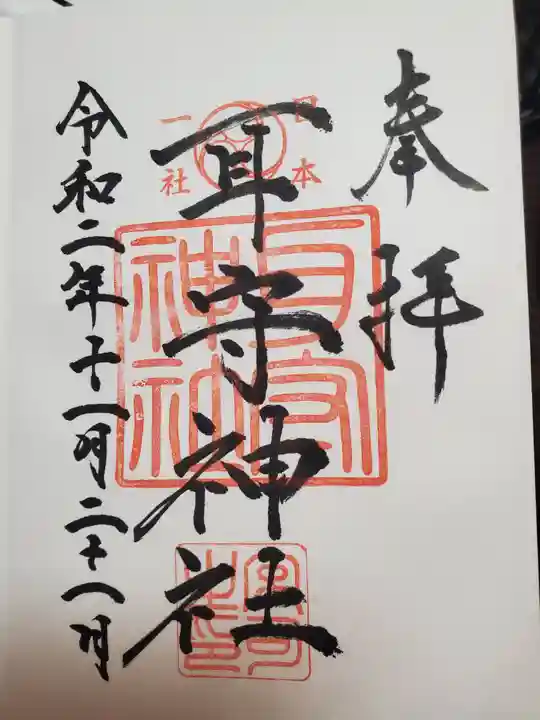 奉拝
日本
一社
耳守神社
耳守神社
令和二年十一月二十八日